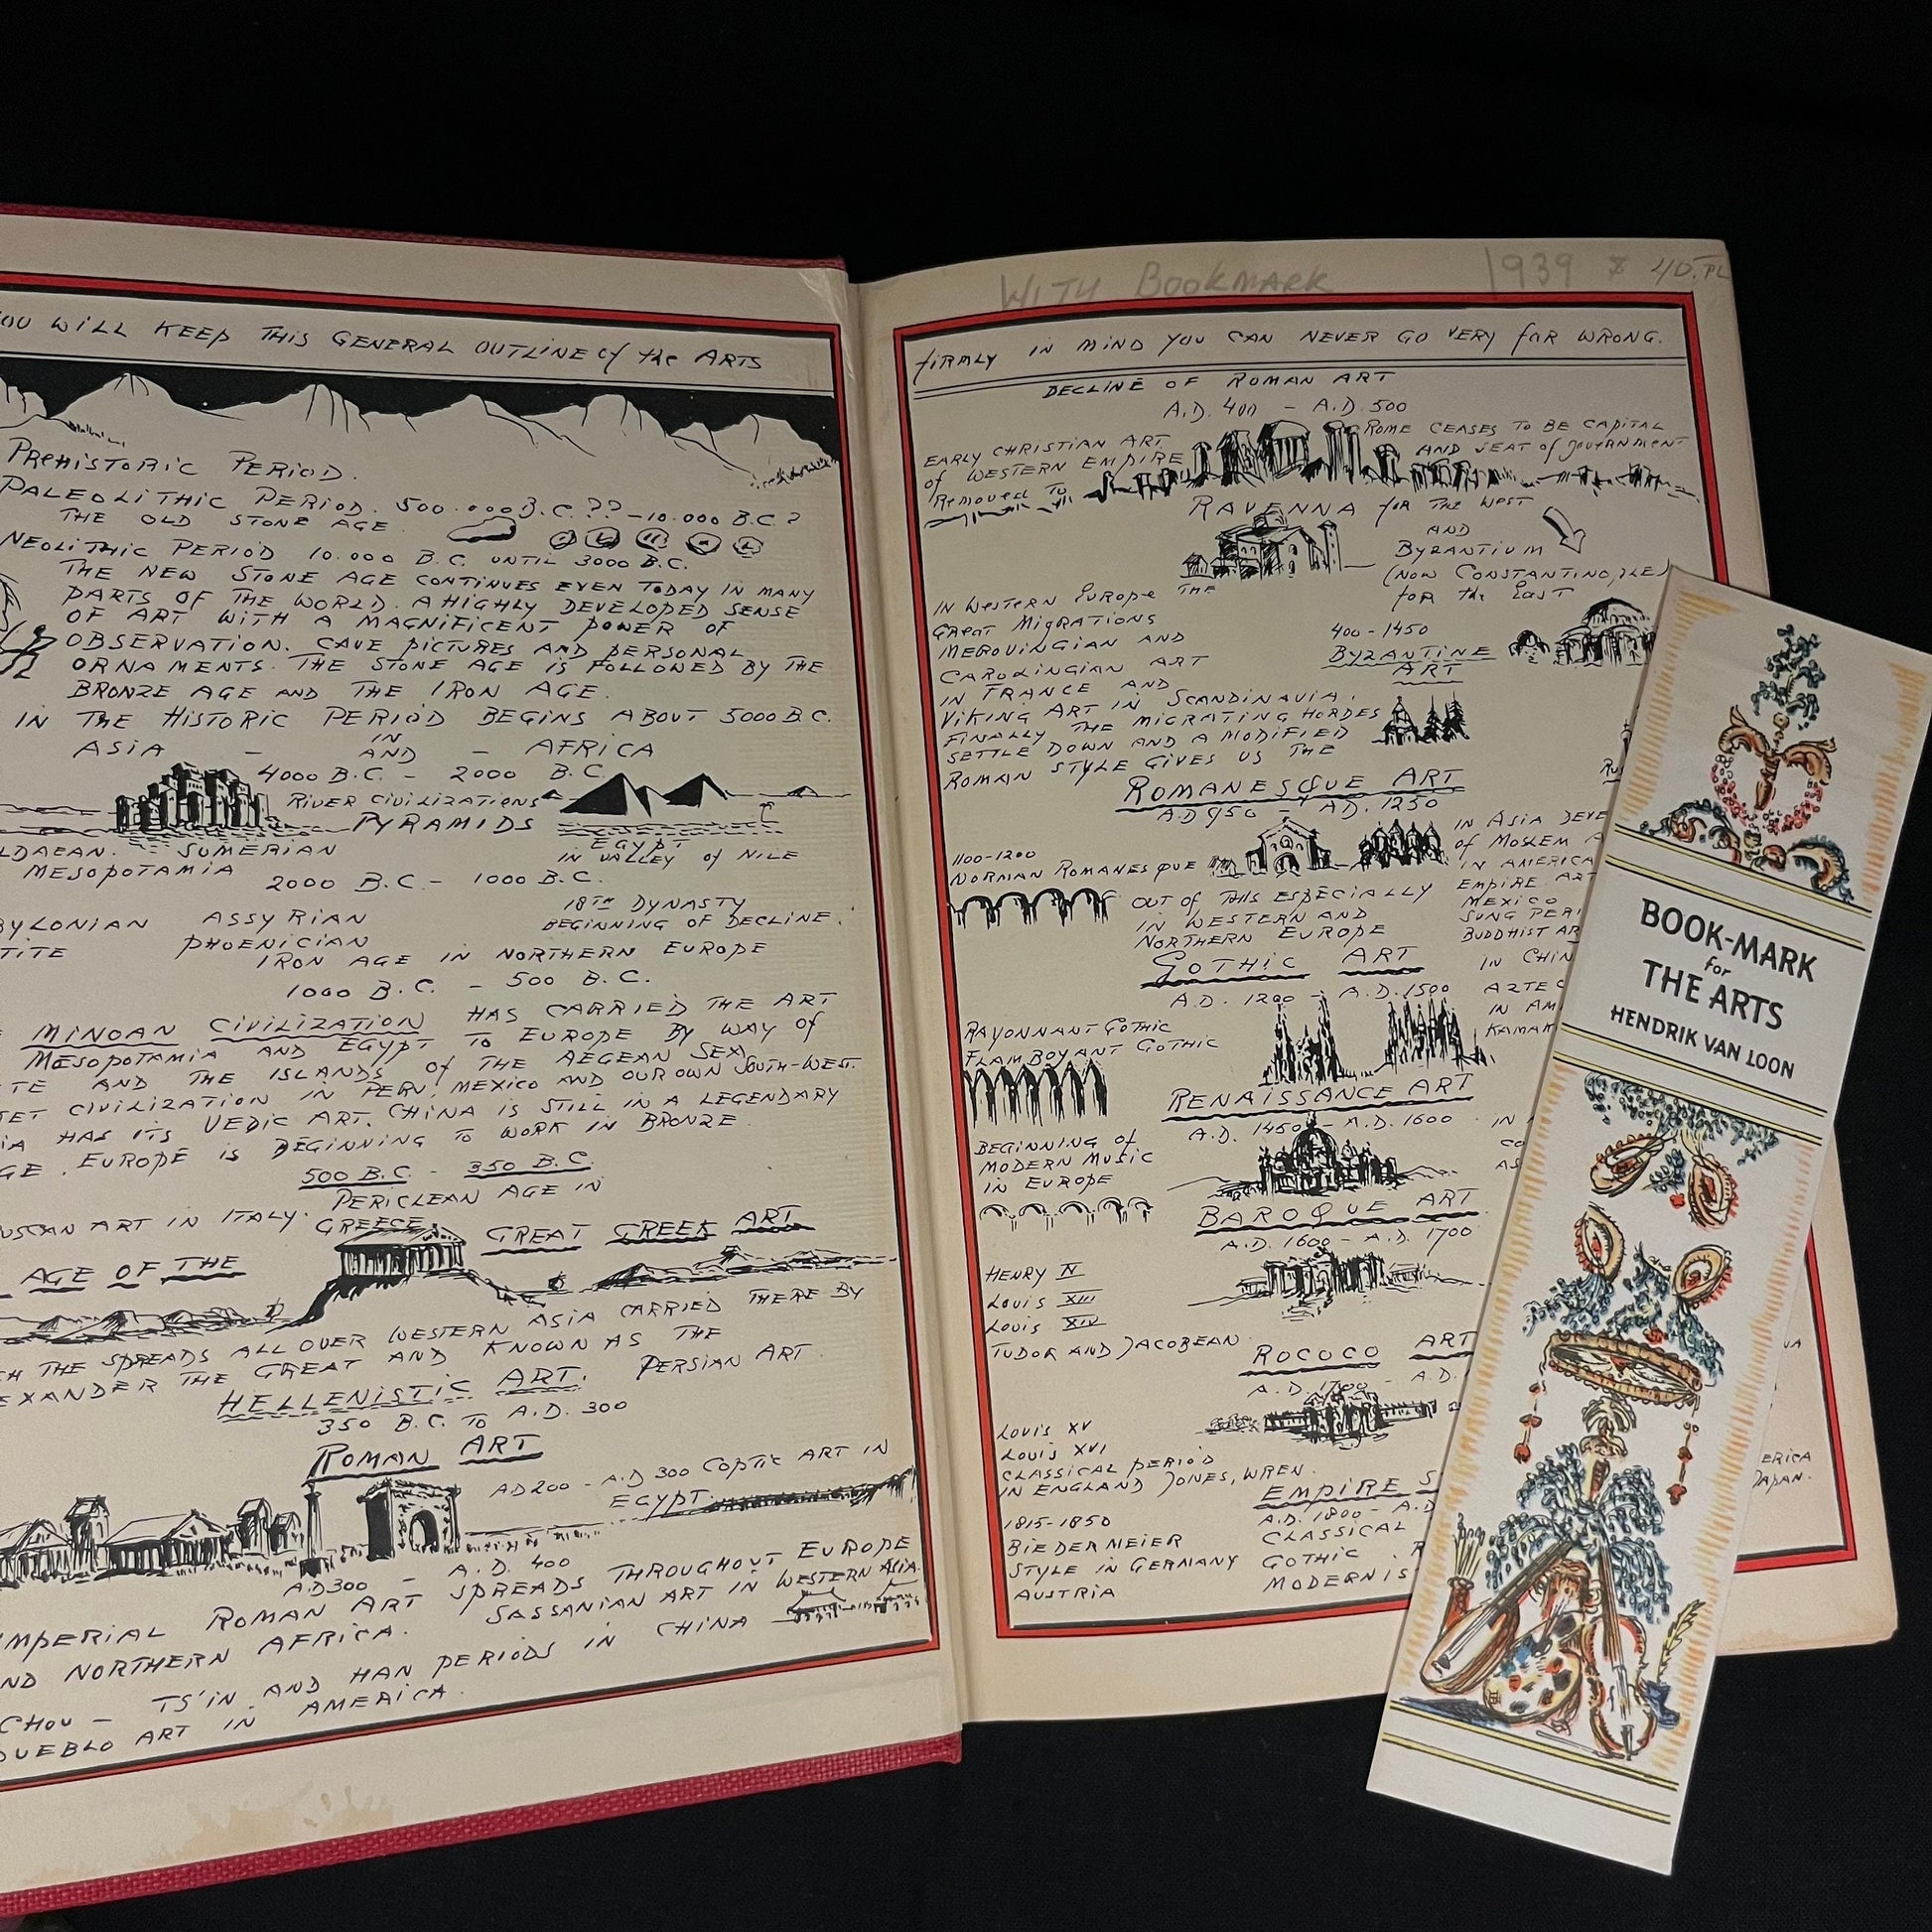 YOU WILL KEEP THIS GENERAL OUTLINE of the ARTS
PREHISTORIC PERIOD.
PALEOLITHIC PERIOD. 500.000 B.C.?? – 10.000 B.C?
THE OLD STONE AGE
NEOLITHIC PERIOD 10.000 B.C. UNTIL 3000 B.C.
THE NEW STONE AGE CONTINUES EVEN TODAY IN MANY
PARTS OF THE WORLD. A HIGHLY DEVELOPED SENSE
OF ART WITH A MAGNIFICENT POWER OF
OBSERVATION. CAVE PICTURES AND PERSONAL
ORNAMENTS. THE STONE AGE IS FOLLOWED BY THE
BRONZE AGE AND THE IRON AGE.
IN THE HISTORIC PERIOD BEGINS ABOUT 5000 B.C.
IN
ASIA – AND – AFRICA
4000 B.C. – 2000 B.C.
RIVER CIVILIZATIONS
PYRAMIDS
SUMERIAN
EGYPT
MESOPOTAMIA
IN VALLEY of NILE
2000 B.C. – 1000 B.C.
18TH DYNASTY
ASSYRIAN
BEGINNING OF DECLINE.
PHOENICIAN
IRON AGE IN NORTHERN EUROPE
1000 B.C. – 500 B.C.
MINOAN CIVILIZATION HAS CARRIED THE ART
MESOPOTAMIA AND EGYPT TO EUROPE BY WAY of
AND THE ISLANDS of THE AEGEAN SEA
CIVILIZATION IN PERU, MEXICO AND OUR OWN SOUTH-WEST.
HAS ITS VEDIC ART. CHINA IS STILL IN A LEGENDARY
EUROPE IS BEGINNING TO WORK IN BRONZE.
500 B.C. – 350 B.C.
PERICLEAN AGE IN
ART IN ITALY. GREECE.
GREAT GREEK ART
AGE OF THE
THE SPREADS ALL OVER WESTERN ASIA CARRIED THERE BY
EXANDER THE GREAT AND KNOWN AS THE
HELLENISTIC ART. PERSIAN ART.
350 B.C. TO A.D. 300
ROMAN ART
AD 200 – A.D 300 COPTIC ART IN
EGYPT.
A.D 300 – A.D. 400
IMPERIAL ROMAN ART SPREADS THROUGHOUT EUROPE
AND NORTHERN AFRICA. SASSANIAN ART IN WESTERN ASIA.
CHOU – TS'IN AND HAN PERIODS IN CHINA
PUEBLO ART IN AMERICA.
WITH BOOKMARK 1939
FIRMLY IN MIND YOU CAN NEVER GO VERY far WRONG.
DECLINE OF ROMAN ART
A.D. 400 – A.D. 500
EARLY CHRISTIAN ART
of WESTERN EMPIRE
Removed TO
ROME CEASES TO BE CAPITAL
AND SEAT of government
RAVENNA for THE WEST
AND
BYZANTIUM
(NOW CONSTANTINOPLE)
for the East
IN Western Europe THE
GREAT MIGRATIONS
MEROVINGIAN AND
CAROLINGIAN ART
IN FRANCE AND
VIKING ART IN SCANDINAVIA.
FINALLY THE MIGRATING HORDES
SETTLE DOWN AND A MODIFIED
ROMAN STYLE GIVES US THE
400-1450
BYZANTINE
ART
ROMANESQUE ART
A.D 950 – A.D. 1250
1100-1200
NORMAN ROMANESQUE
OUT OF THIS ESPECIALLY
IN WESTERN AND
NORTHERN EUROPE
IN ASIA
of MOSLEM
IN AMERICA
EMPIRE ART
MEXICO
SUNG
BUDDHIST
IN
AZTEC
IN
GOTHIC ART
A.D. 1200 – A.D. 1500
RAYONNANT GOTHIC
FLAMBOYANT GOTHIC
RENAISSANCE ART
A.D. 1450 – A.D. 1600
BEGINNING of
MODERN MUSIC
IN EUROPE
BAROQUE ART
A.D. 1600 – A.D. 1700
HENRY IV
LOUIS XIII
LOUIS XIV
TUDOR AND JACOBEAN
ROCOCO ART
A.D. 1700 – A.D.
LOUIS XV
LOUIS XVI
CLASSICAL PERIOD
IN ENGLAND JONES, WREN.
EMPIRE
A.D. 1800 – A.D
CLASSICAL
GOTHIC
1815-1850
BIEDERMEIER
STYLE IN GERMANY
AUSTRIA
JAPAN.
BOOK-MARK
for
THE ARTS
HENDRIK VAN LOON